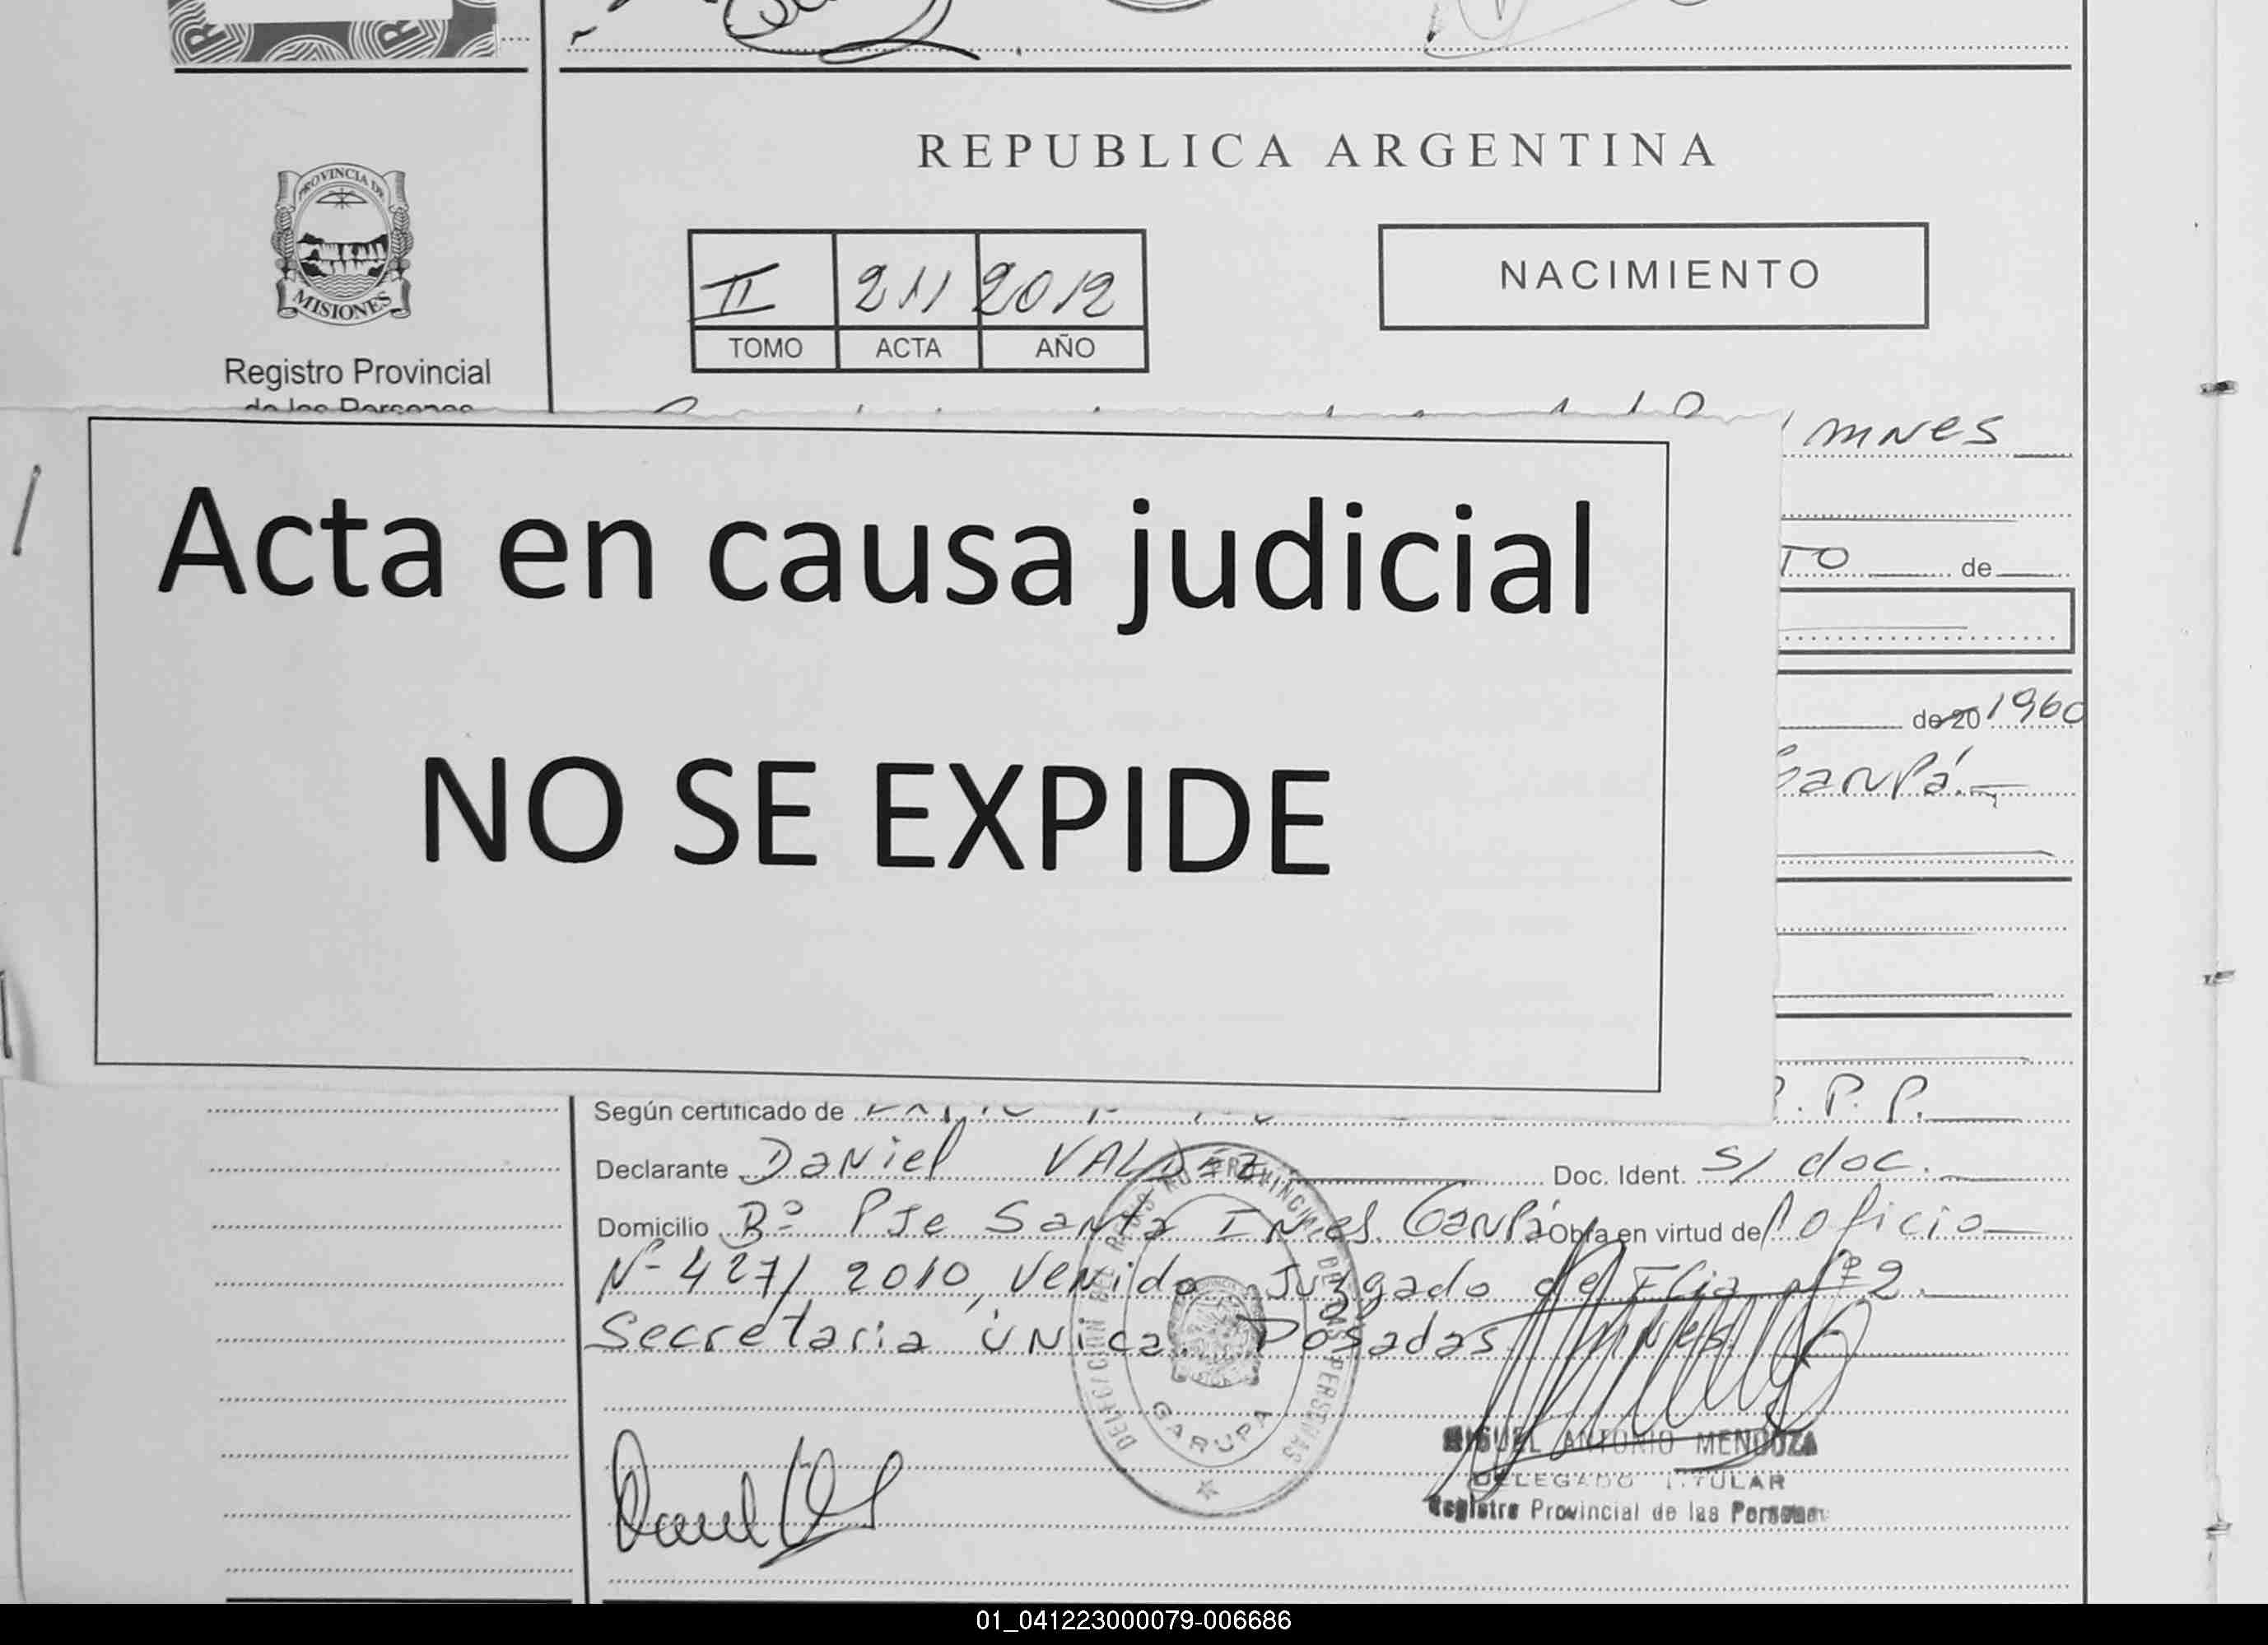 REPUBLICA ARGENTINA
PROVINCIA DE
MISIONES
II 211 2012
TOMO ACTA AÑO
NACIMIENTO
Registro Provincial
de las Personas
mnes
Acta en causa judicial
NO SE EXPIDE
TO de
de 20 1960
Garupá.
P. P.
Según certificado de
Declarante Daniel VALDEZ Doc. Ident. S/ doc.
Domicilio Bº PJe Santa INes. Garupá Obra en virtud del oficio
Nº 427/ 2010, Venido Juzgado de Flia Nº 2.
Secretaria única. Posadas mnes.
DELEGACIÓN DEL REGISTRO PROVINCIAL DE LAS PERSONAS
GARUPA
MIGUEL ANTONIO MENDOZA
DELEGADO TITULAR
Registro Provincial de las Personas
01_041223000079-006686